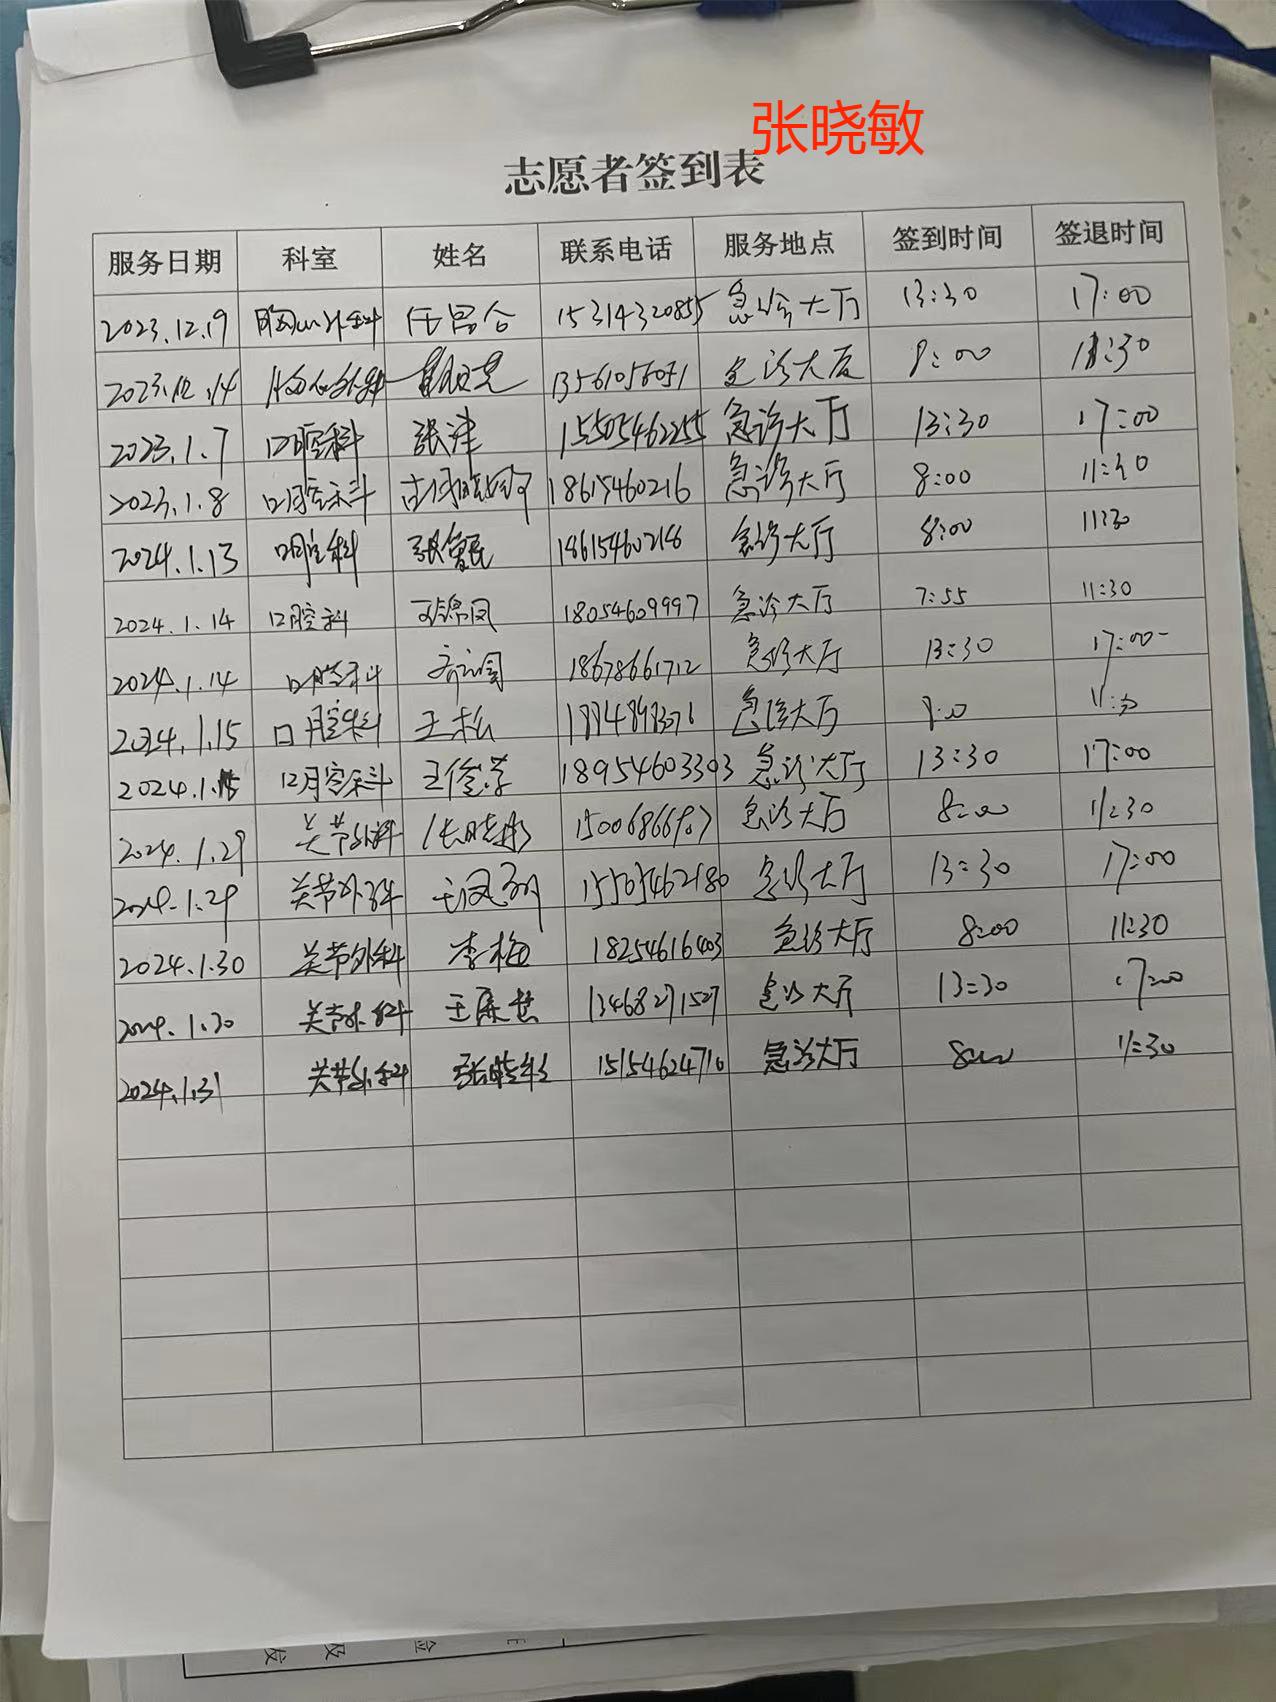 张晓敏
志愿者签到表
服务日期 科室 姓名 联系电话 服务地点 签到时间 签退时间
2023.12.19 胸心外科 15314320855 急诊大厅 13:30 17:00
2023.12.14 急诊大厅 8:00 11:30
2023.1.7 口腔科 张津 15505462255 急诊大厅 13:30 17:00
2023.1.8 口腔科 18615460216 急诊大厅 8:00 11:30
2024.1.13 口腔科 18615460218 急诊大厅 8:00 11:30
2024.1.14 口腔科 18054609997 急诊大厅 7:55 11:30
2024.1.14 口腔科 18678661712 急诊大厅 13:30 17:00
2024.1.15 口腔科 王松 急诊大厅 8:00 11:30
2024.1.15 口腔科 王俊学 18954603393 急诊大厅 13:30 17:00
2024.1.29 关节外科 急诊大厅 8:00 11:30
2024.1.29 关节外科 15505462180 急诊大厅 13:30 17:00
2024.1.30 关节外科 李梅 18254616403 急诊大厅 8:00 11:30
2024.1.30 关节外科 13468271527 急诊大厅 13:30 17:00
2024.1.31 关节外科 15154624710 急诊大厅 8:00 11:30